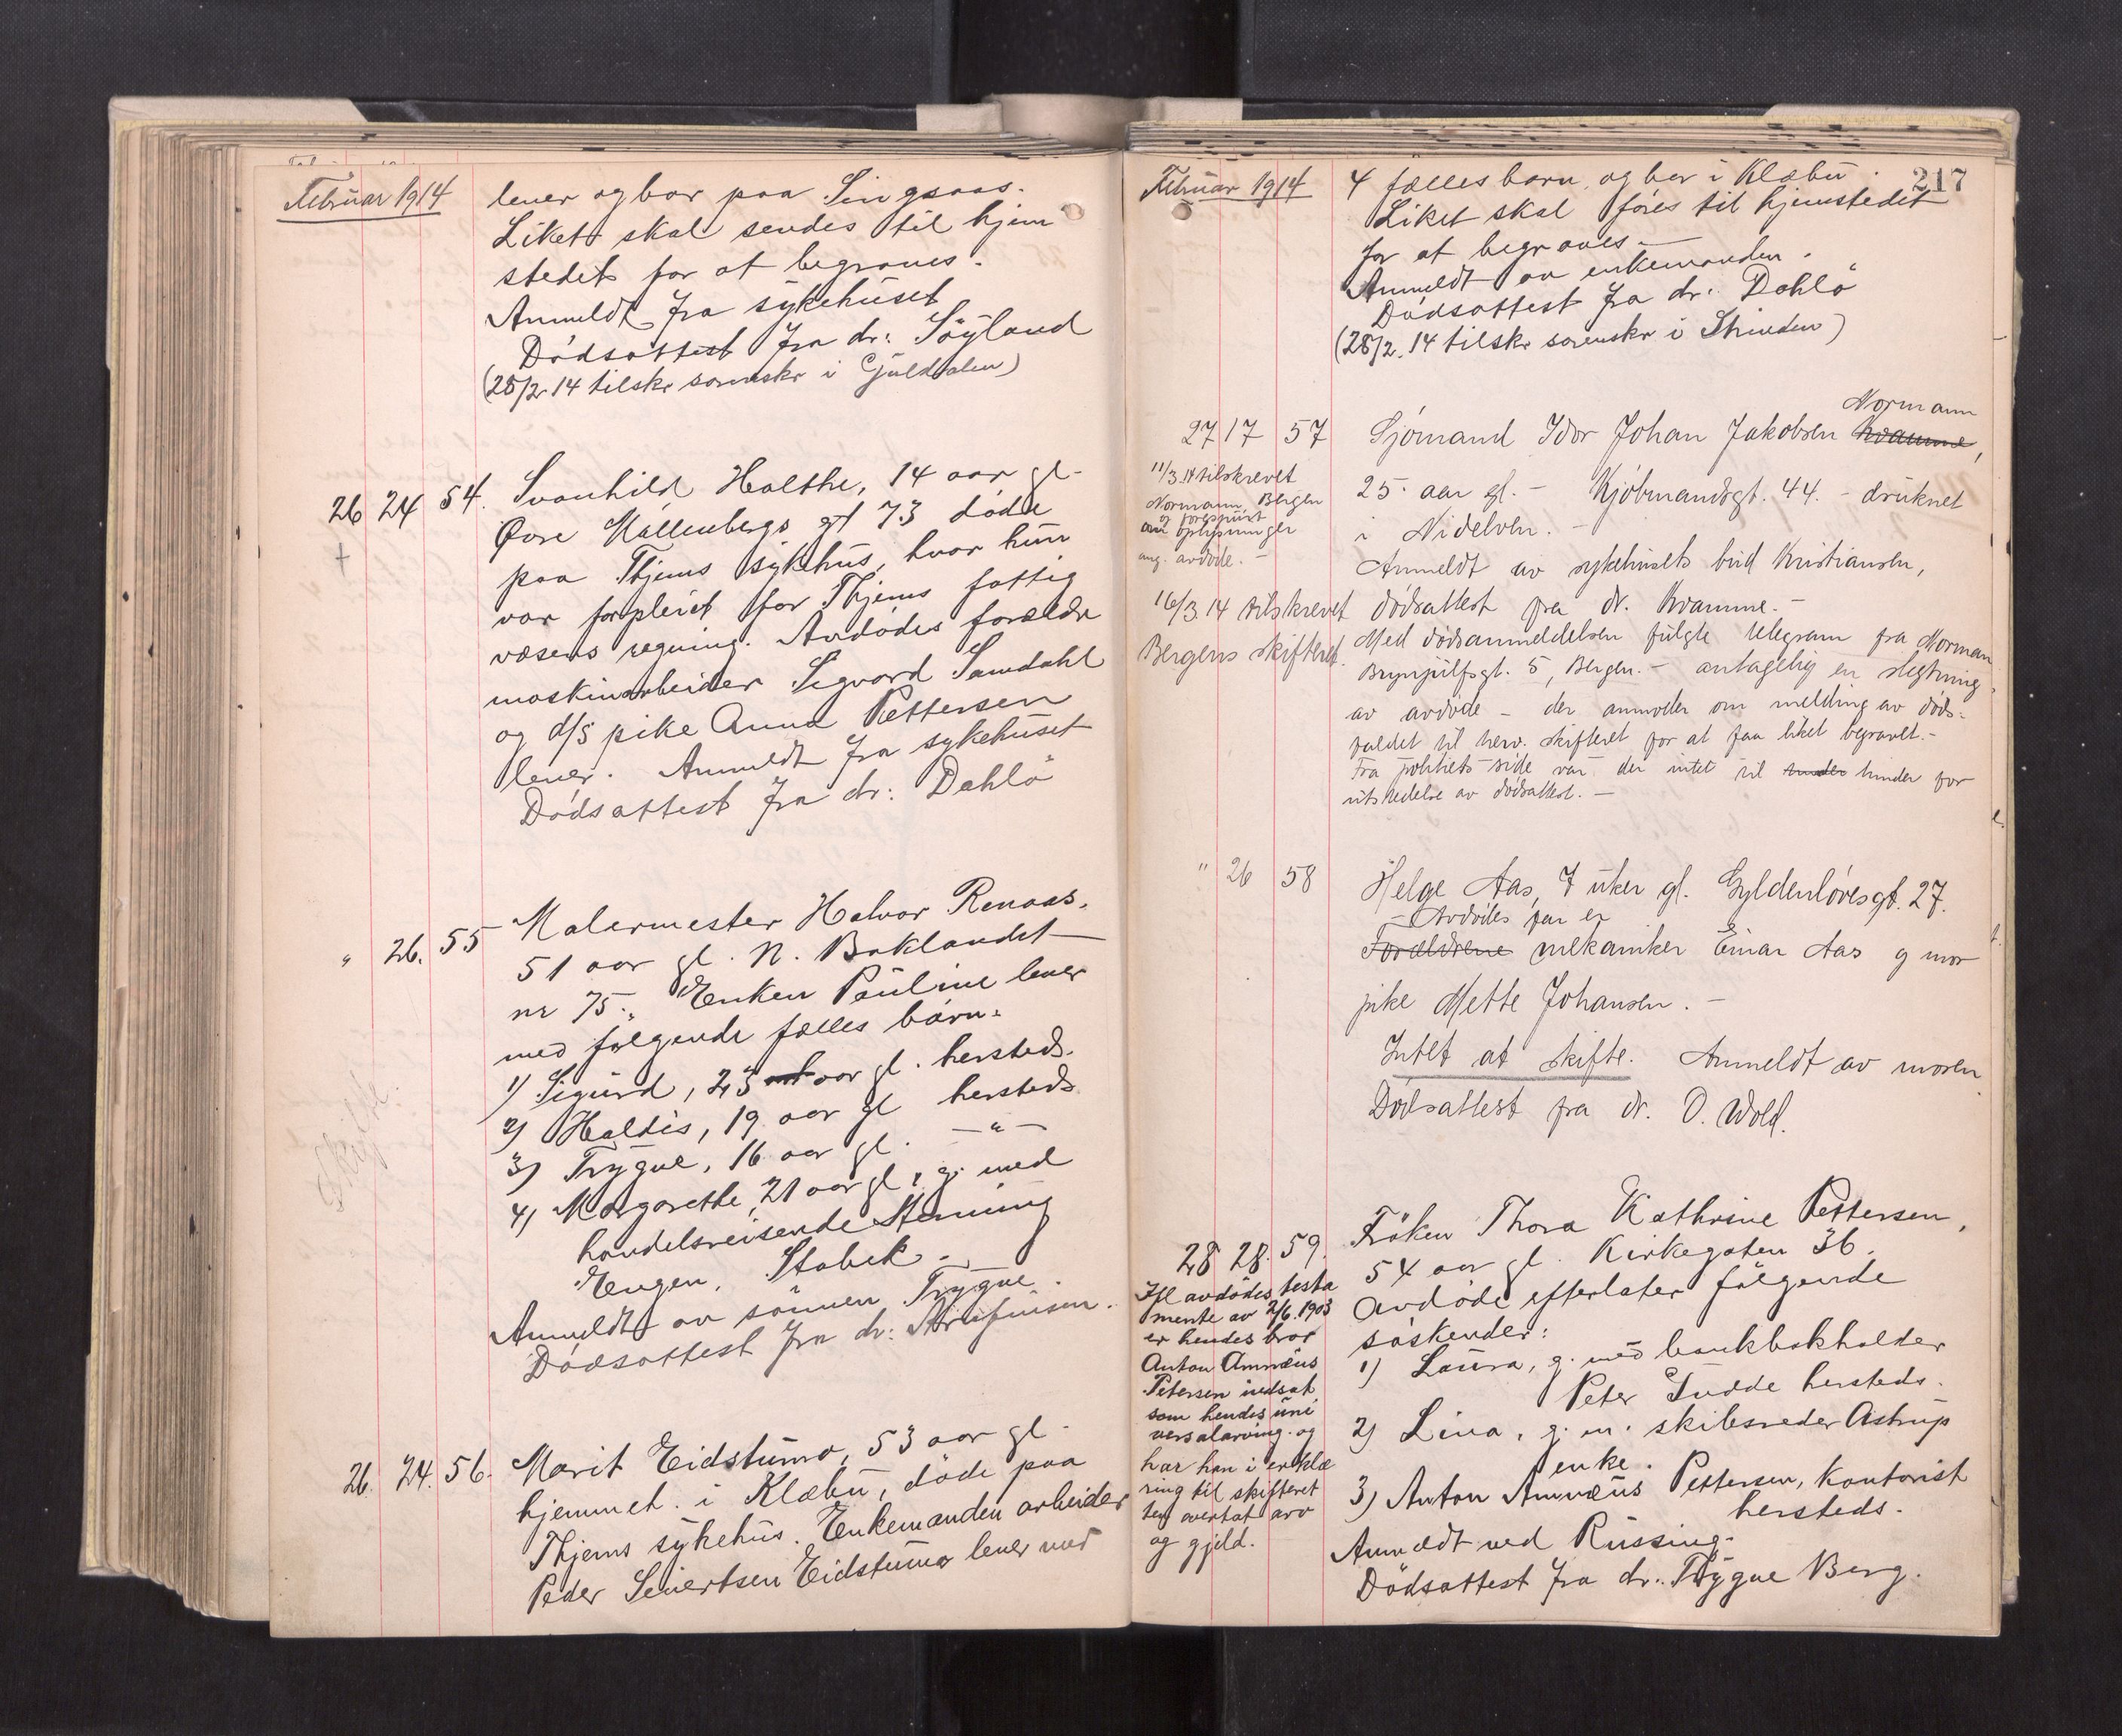 Februar 1914
lever og bor paa Singsaas.
Liket skal sendes til hjem
stedet for at begraves.
Anmeldt fra sykehuset
Dödsattest fra dr: Söyland
(25/2 14 tilskr sorenskr i Guldalen)
26 24 54. Svanhild Holthe, 14 aar gl.
Övre Möllenbergs gt 73 døde
paa Thjems sykehus, hvor hun
var forpleiet for Thjems fattig
væsens regning. Avdödes forældre
maskinarbeider Sigvard Samdahl
og d/s pike Anna Pettersen
lever. Anmeldt fra sykehuset
Dödsattest fra dr: Dahlö
" 26. 55 Malermester Halvor Renaas.
51 aar gl. N. Baklandet
nr 75. Enken Pauline lever
med følgende fælles börn.
1) Sigurd, 23 aar gl. hersteds.
2) Haldis, 19 aar gl hersteds
3) Trygve, 16 aar gl. — " —
4) Margarethe, 21 aar gl, g. med
handelsreisende Henning
Engen, Stabek.
Anmeldt av sönnen Trygve.
Dödsattest fra dr: Arnfinsen.
Skifte.
26. 24. 56. Marit Eidstumo, 53 aar gl.
hjemmeh. i Klæbu, döde paa
Thjems sykehus. Enkemanden arbeider
Peder Sivertsen Eidstumo lever med
217
Februar 1914
4 fælles barn, og bor i Klæbu.
Liket skal föres til hjemstedet
for at begraves —
Anmeldt av enkemanden.
Dödsattest fra dr. Dahlö
(28/2. 14 tilskr sorenskr i Strinden)
Normann
27 17 57 Sjómand Idor Johan Jakobsen Kvamme,
25 aar gl. - Kjöbmandsgt. 44. - druknet
i Nidelven. -
Anmeldt av sykehusets bud Kristiansen,
dödsattest fra dr. Kvamme. -
Med dödsanmeldelsen fulgte telegram fra Norman
Brynjulfsgt. 5, Bergen. - antagelig en slegtning
av avdöde - der anmoder om melding av döds-
faldet til herv. skifteret for at faa liket begravet. -
Fra politiets side var der intet til hinder hinder for
utstedelse av dödsattest. -
11/3.14 tilskrevet
Normann, Bergen
og forespurt
om oplysninger
ang. avdöde. -
16/3.14 tilskrevet
Bergens skifteret.
" 26 58 Helge Aas, 7 uker gl. Gyldenlövesgt. 27.
- Avdödes far er
Forældrene mekaniker Einar Aas og mor
pike Mette Johansen. -
Intet at skifte. Anmeldt av moren.
Dödsattest fra dr. O. Wold.
28 28. 59. Fröken Thora Kathrine Pettersen,
54 aar gl. Kirkegaten 36.
Avdöde efterlater fölgende
söskender:
1) Laura, g. med bankbokholder
Peter Tudde hersteds.
2) Lina, g. m. skibsreder Astrup
enke.
3) Anton Amnæus Pettersen, kontorist
hersteds.
Anmeldt ved Russing.
Dödsattest fra dr. Trygve Berg.
Ifl avdödes testa
mente av 2/6.1903
er hendes bror
Anton Amnæus
Petersen indsat
som hendes uni
versalarving. og
har han i erklæ
ring til skifteret
ten overtat arv
og gjeld.